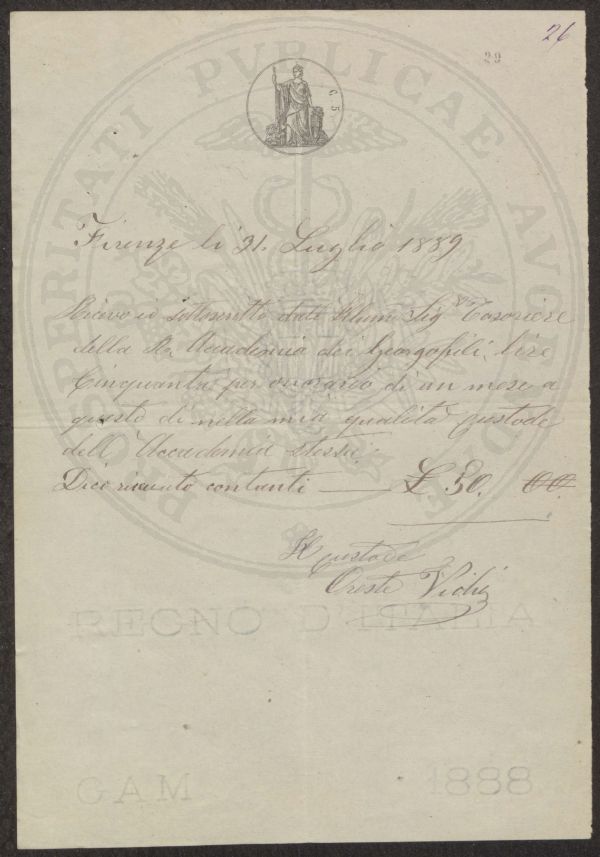 26
29
C. 5
Firenze li 31. Luglio 1889
Ricevo io sottoscritto dall Illmo Sig Tesoriere
della R. Accademia dei Georgofili, lire
Cinquanta per onorario di un mese a
questo dì nella mia qualità custode
dell' Accademia stessa.
Dico ricevuto contanti — £ 50. 00
Il custode
Oreste
REGNO D'ITALIA
GAM 1888
PROSPERITATI PVBLICAE AVGENDAE